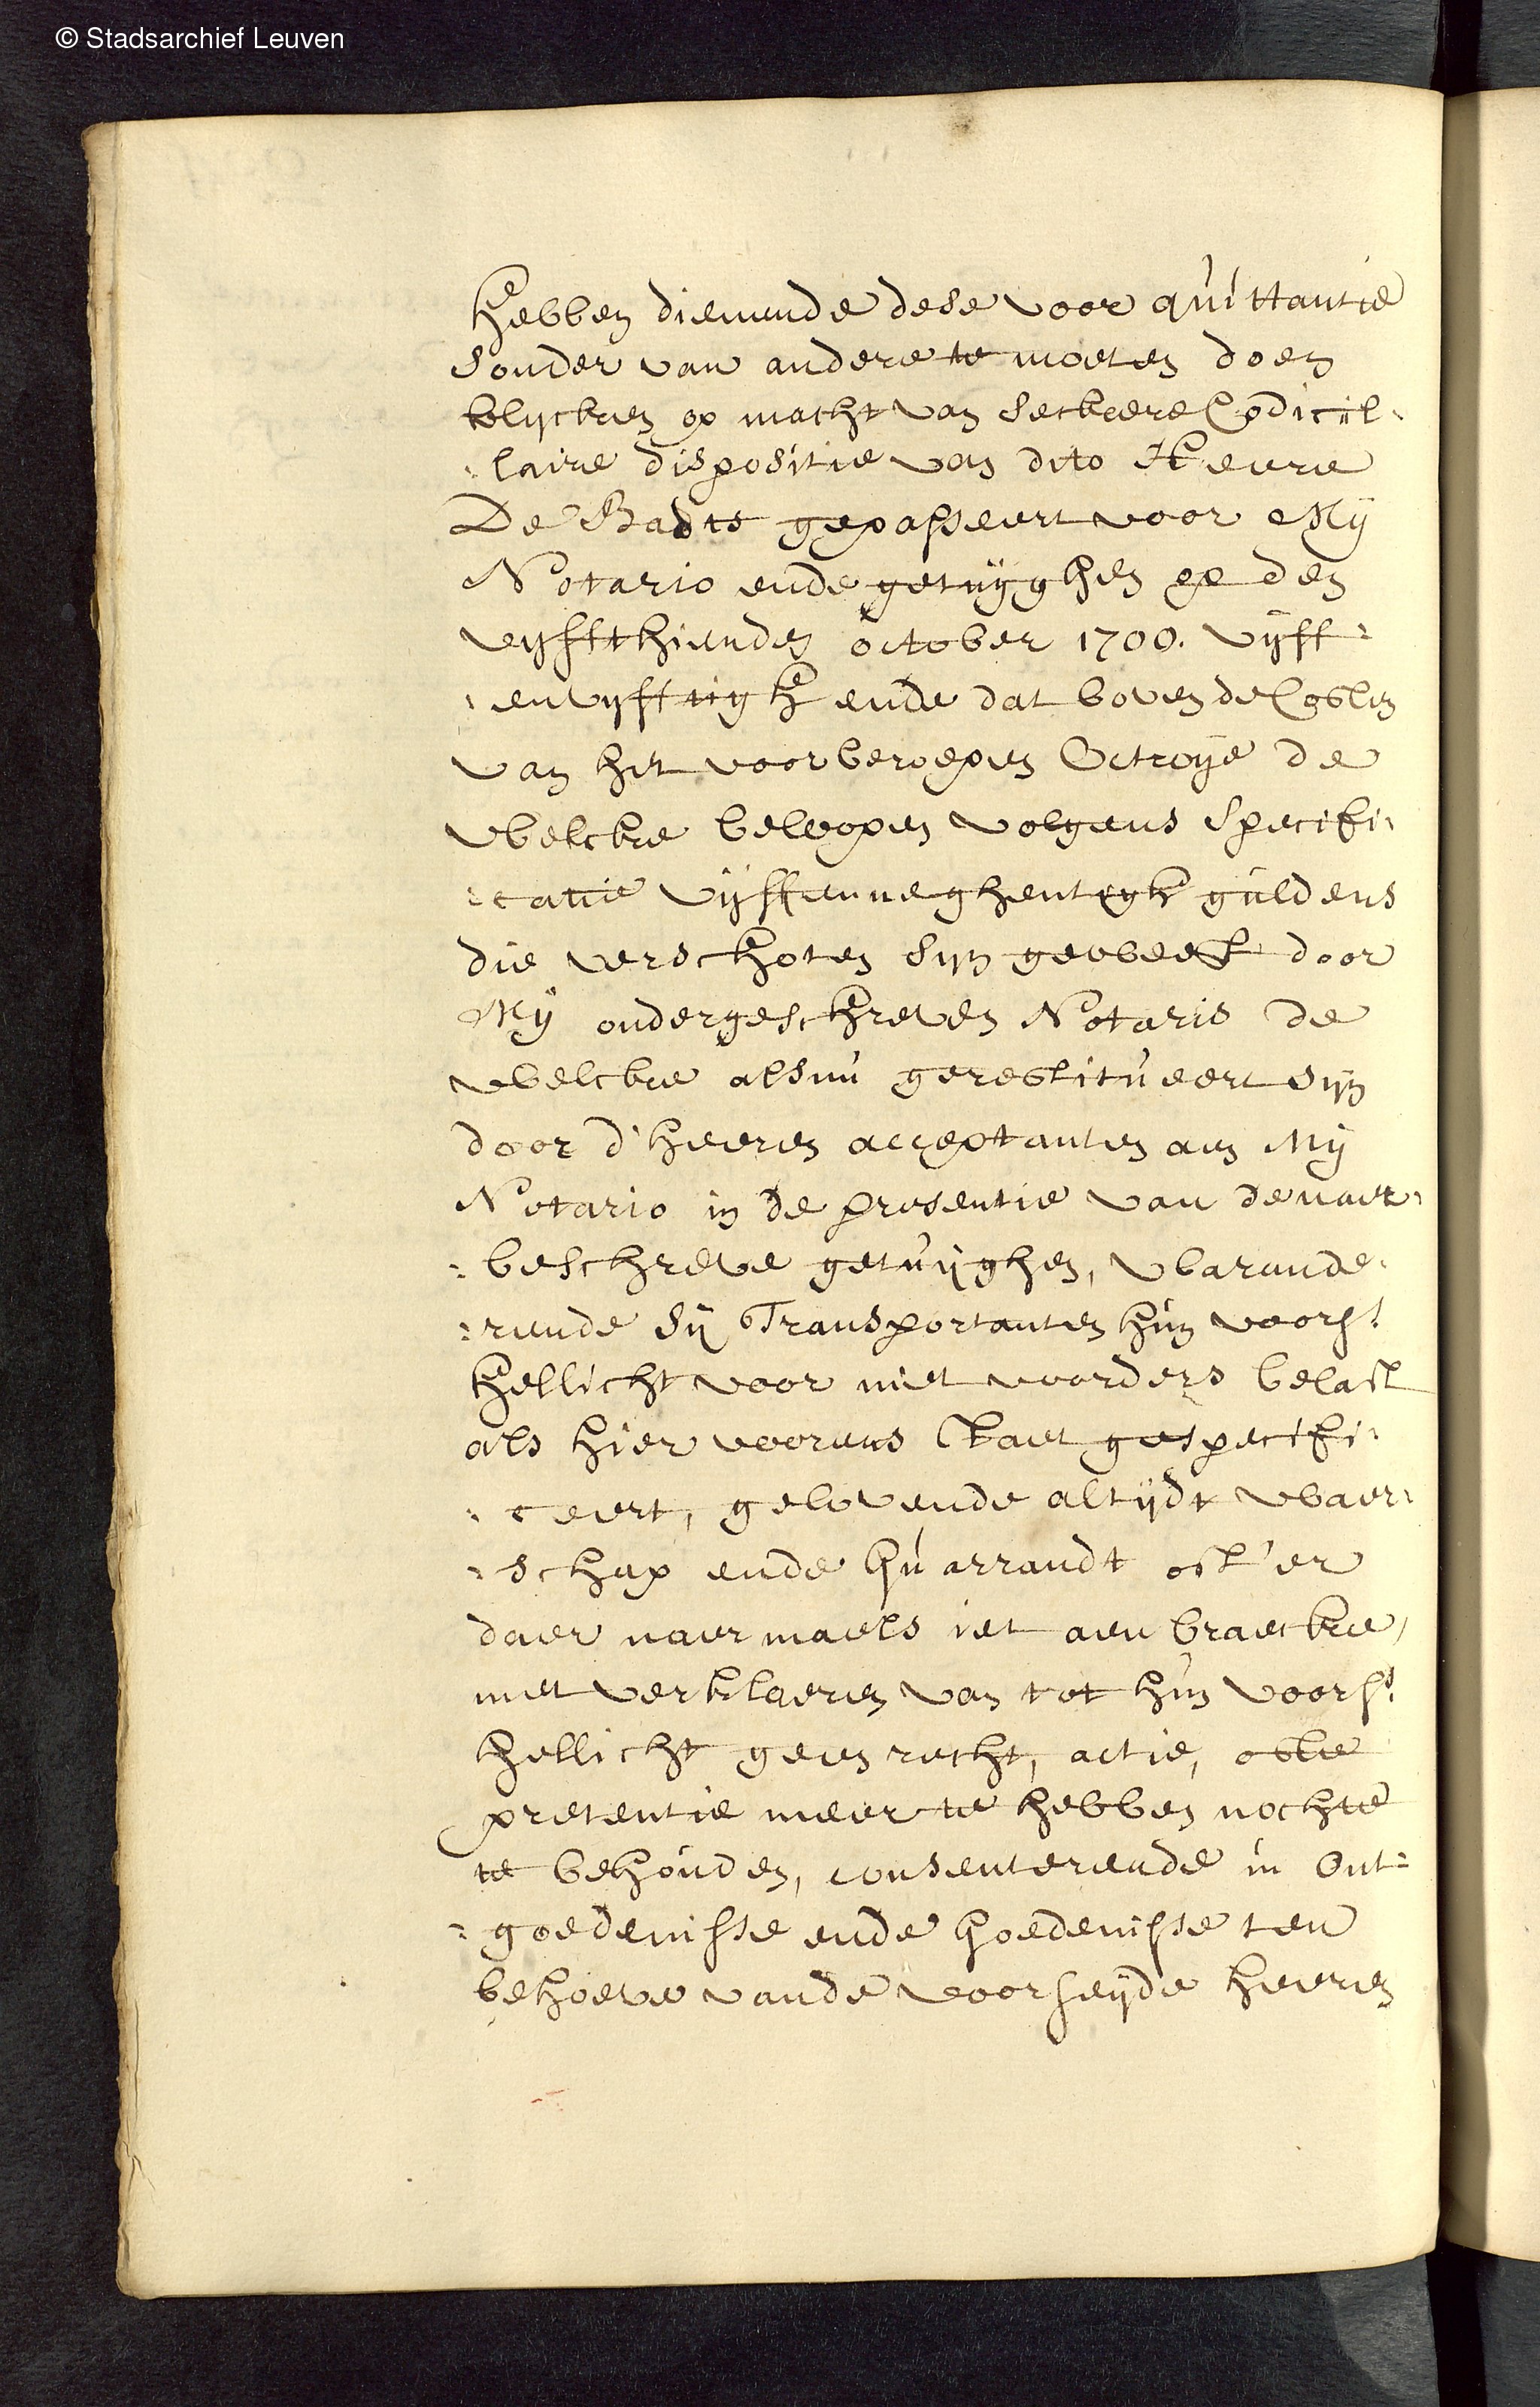 © Stadsarchief Leuven
hebben dienende dese voor quittantie
sonder van andere te moeten doen
blycken op macht van seckere Codicil-
-laire dispositie van dito Heere
De Badts gepasseert voor My
Notario ende getuyghen op den
vyffthienden october 1700. vyff-
-envyfftigh ende dat boven de Costen
van het voorberoepen Octroye de
welcke beloopen volgens specifi-
-catie vyffenneghentigh guldens
die verschoten syn geweest door
My ondergeschreven Notaris de
welcke alsnu gerestitueert syn
door d'heeren acceptanten aen My
Notario in de presentie van de naer-
=beschreve getuyghen, warande-
=rende sy Transportanten hun voors.t
hellicht voor niet voorders belast
als hier voorens staet gespecifi-
-ceert, gelovende altydt waer-
-schap ende Guarrandt oft'er
daer naermaels iet aen braecke,
met verklaeren van tot hun voors.t
hellicht geen recht, actie, ofte
pretentie meer te hebben nochte
te behouden, consenterende in Ont=
=goedenisse ende Goedenisse ten
behoeve vande voorseyde heeren